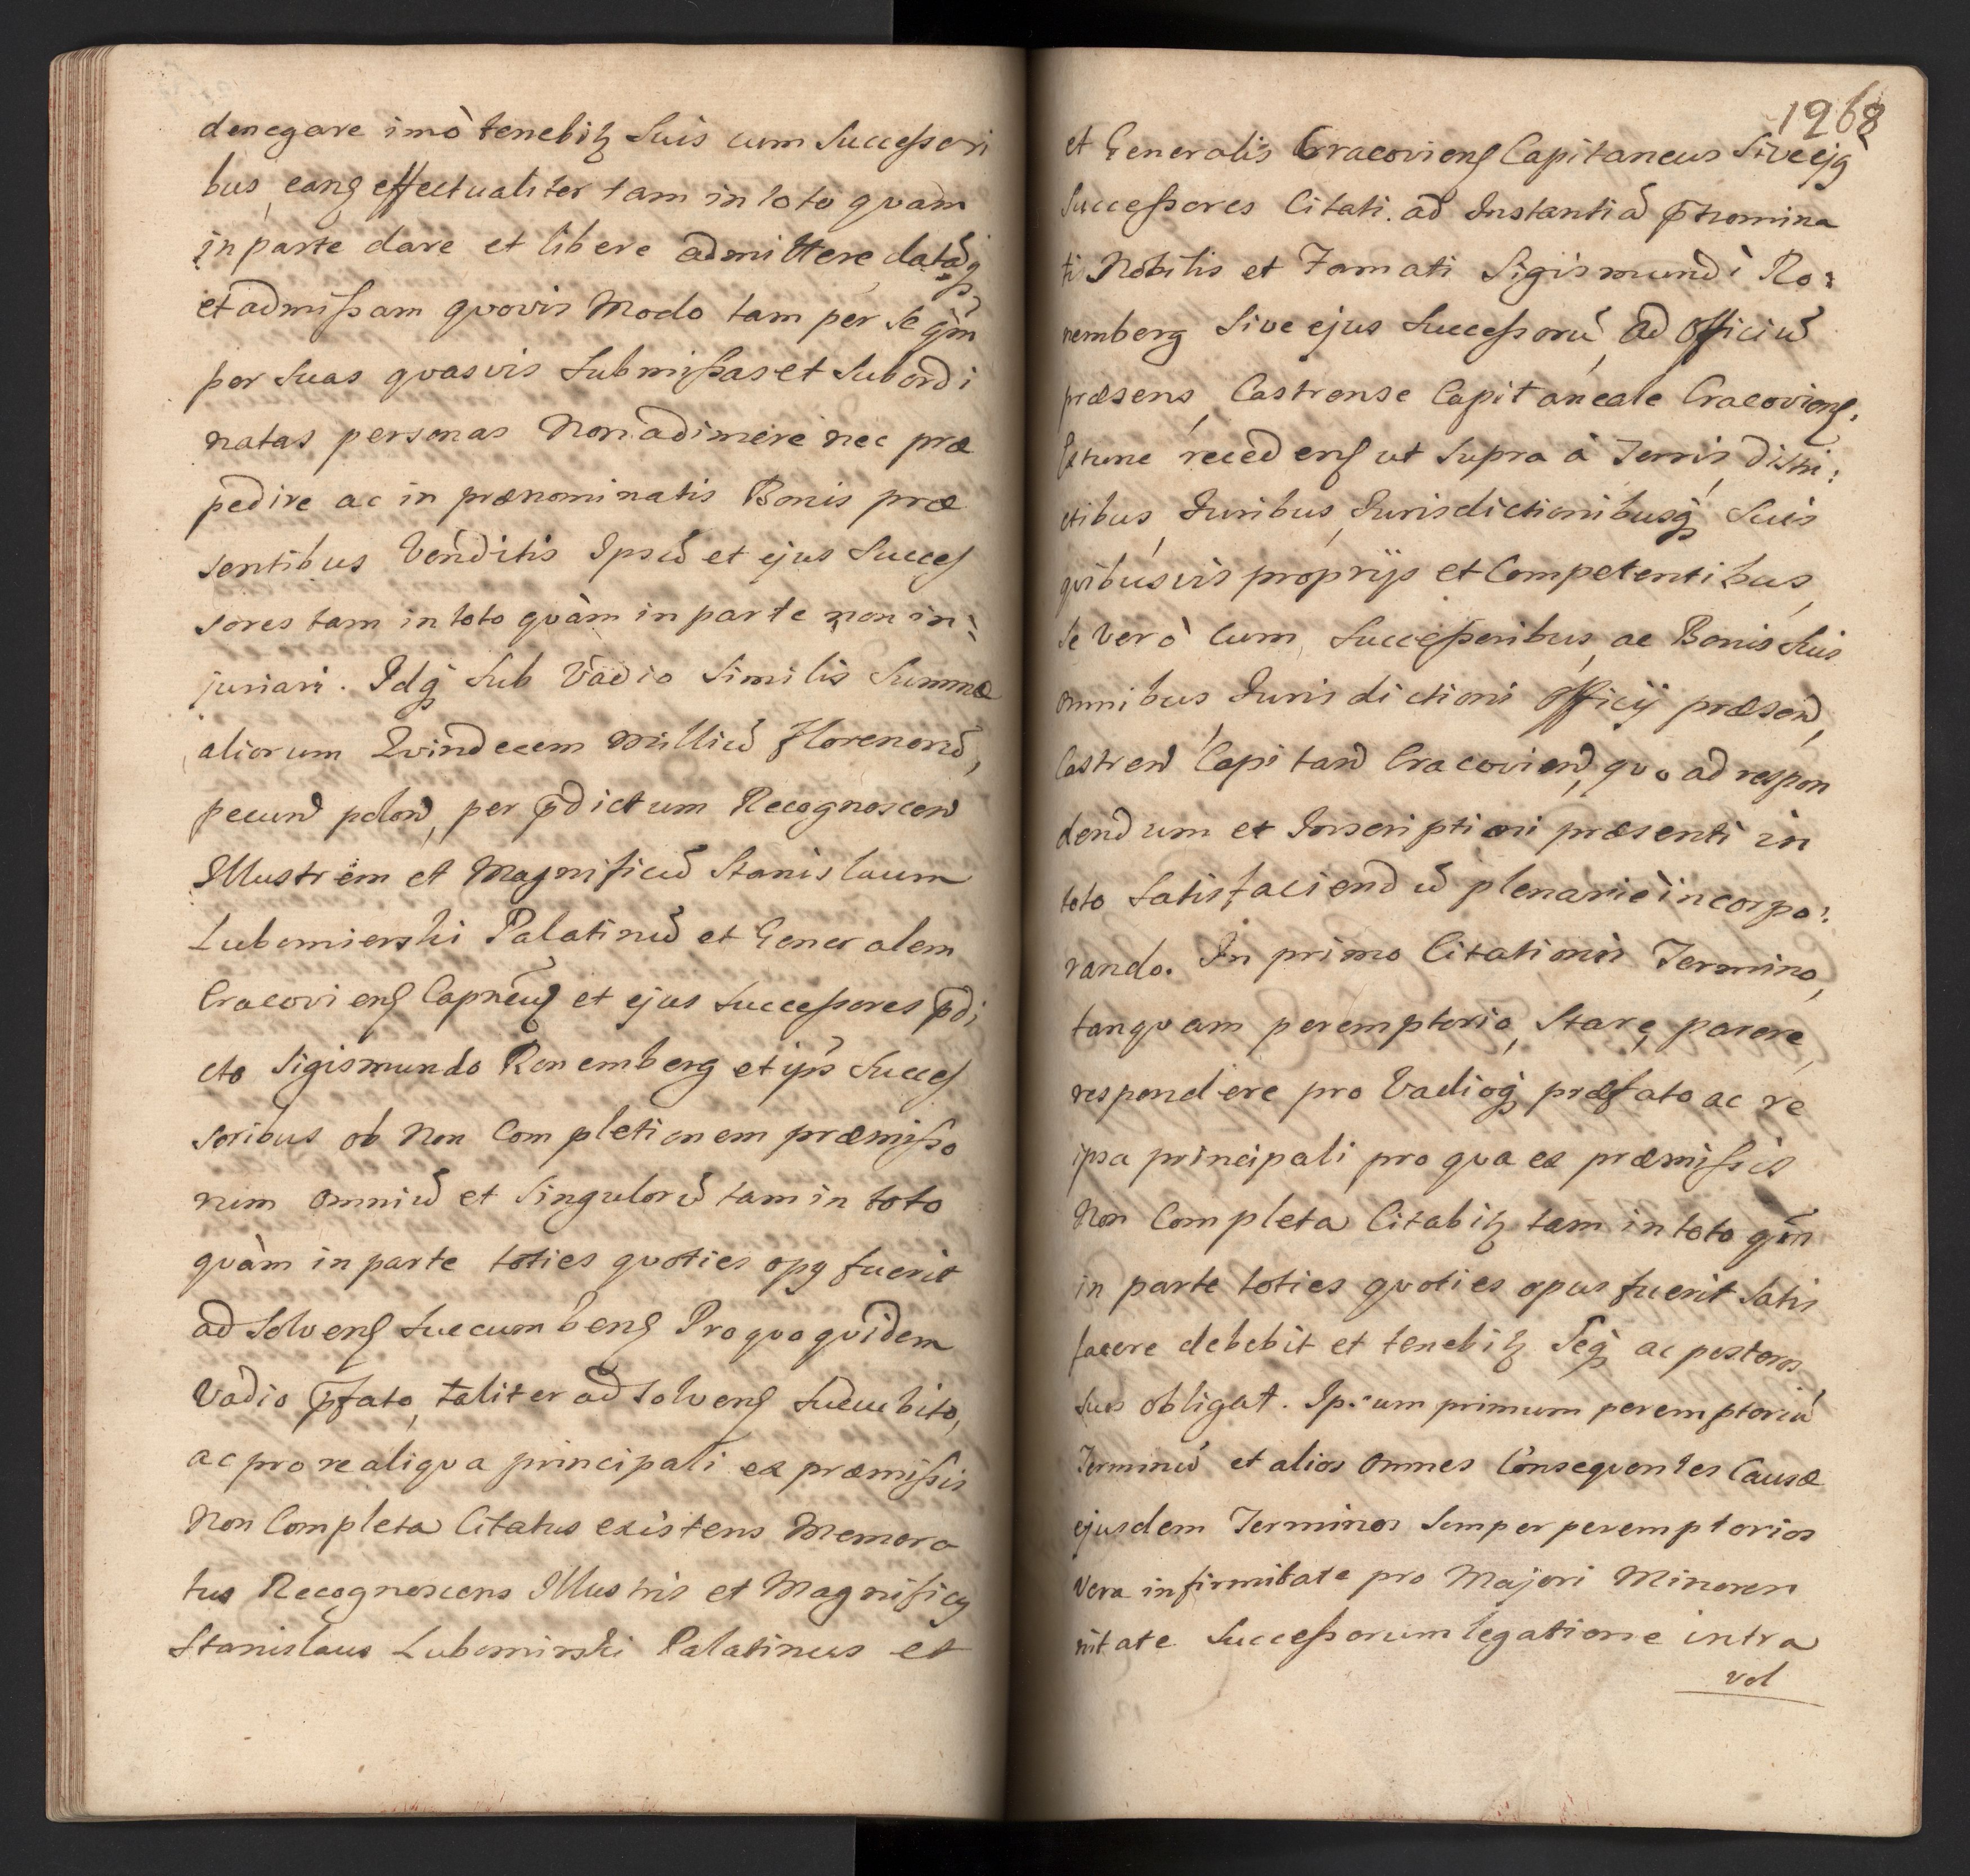 denegare imò tenebitꝫ Suis cum Successori
bus, eanꝗ effectualiter tam in toto qvàm
in parte dare et libere admittere datāqꝫ
et admissam qvovis Modo tam per Se qm̄
per Suas qvasvis Submissas et Subordi
natas personas Non adimere nec præ
pedire ac in prænominatis Bonis præ
sentibus Venditis Ipsū et ejus Succes
sores tam in toto qvàm in parte non in:
juriari. Idqꝫ Sub Vadio Similis Summæ
aliorum Qvindecem Milliū florenorū,
pecun̄ polon̄, per p̄dictum Recognoscen̄
Illustrem et Magnificū Stanislaum
Lubomierski Palatinū et Generalem
Cracovienꝭ Capnēuꝭ et ejus Successores p̄di
cto Sigismundo Ronemberg et ip̄s Succes
soribus ob Non Completionem præmisso
rum omniū et Singulorū tam in toto
qvàm in parte toties qvoties opꝯ fuerit
ad Solvenꝭ Succumbenꝭ Pro qvo qvidem
Vadio p̄fato, taliter ad Solvenꝭ Succubito,
ac pro re aliqva principali ex præmissis
Non Completa Citatus existens Memora
tus Recognoscens Illustris et Magnificꝯ
Stanislaus Lubomirski Palatinus et
1268
et Generalis Cracovienꝭ Capitaneus Sive ejꝯ
Successores Citati. ad Instantiā p̄nomina
ti Nobilis et Famati Sigismundi Ro:
nemberg Sive ejus Successorū, ad Officiū
præsens, Castrense Capitaneale Cracovienꝭ.
Ex tunc recedenꝭ ut Supra à Terris, distri:
ctibus, Juribus, Jurisdictionibusqꝫ Suis
qvibusvis proprijs et Competentibus,
Se verò cum, Successoribus, ac Bonis Suis
omnibus Jurisdictioni officij præsen̄,
Castren̄ Capitan̄ Cracovien̄, qvo ad respon
dendum et Inscriptioni præsenti in
toto Satisfaciendū plenariè incorpo:
rando. In primo Citationis Termino,
tanqvam peremptorio, Stare, parere,
respondere pro Vadioqꝫ præfato ac re
ipsa principali pro qva ex præmissis
Non Completa Citabitꝫ tam in toto qm̄
in parte toties qvoties opus fuerit Satis
facere debebit et tenebitꝫ Seqꝫ ac posteros
Suos obligat. Ipsum primum peremptoriū
Terminū et alios omnes Conseqventes Causæ
ejusdem Terminos Semper peremptorios
Vera infirmitate pro Majori Minoren
nitate Successorum legatione intra
vel